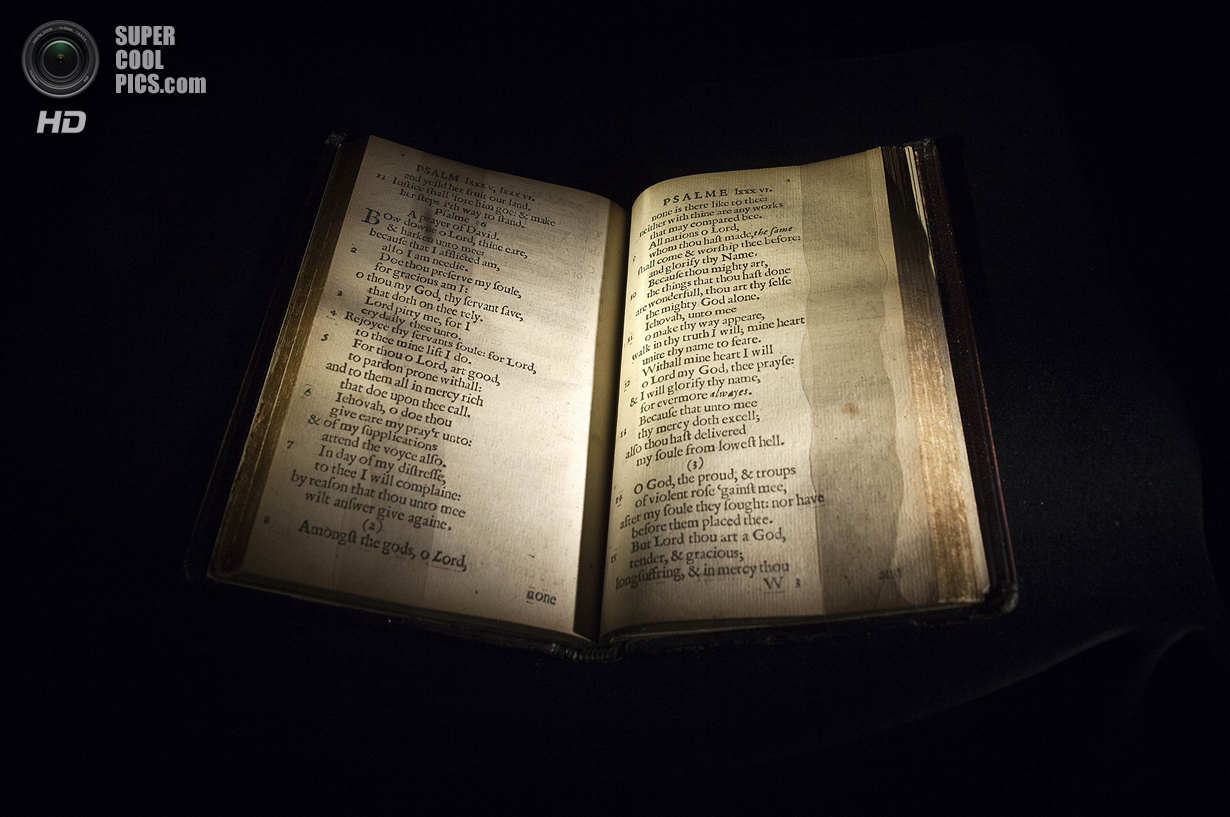 SUPER
COOL
PICS.com
HD
PSALM lxxx v, lxxx vi.
and yeild her fruit our land.
13 Iustice shall 'fore him goe: & make
her steps i'th way to stand.
Psalme 86
A prayer of David.
Bow downe o Lord, thine eare,
& harken unto mee:
because that I afflicted am,
also I am needie.
2 Doe thou preserve my soule,
for gracious am I:
o thou my God, thy servant save,
that doth on thee rely.
3 Lord pitty me, for I
cry daily thee unto.
4 Rejoyce thy servants soule: for Lord,
to thee mine lift I do.
5 For thou o Lord, art good,
to pardon prone withall:
and to them all in mercy rich
that doe upon thee call.
6 Iehovah, o doe thou
give eare my pray'r unto:
& of my supplications
attend the voyce also.
7 In day of my distresse,
to thee I will complaine:
by reason that thou unto mee
wilt answer give againe.
(2)
8 Amongst the gods, o Lord,
none
PSALME lxxx vi.
none is there like to thee:
neither with thine are any works
that may compared bee.
9 All nations o Lord,
whom thou hast made, the same
shall come & worship thee before:
and glorify thy Name.
10 Because thou mighty art,
the things that thou hast done
are wonderfull, thou art thy selfe
the mighty God alone.
11 Iehovah, unto mee
o make thy way appeare,
walk in thy truth I will; mine heart
unite thy name to feare.
12 Withall mine heart I will
o Lord my God, thee prayse:
& I will glorify thy name,
for evermore alwayes.
13 Because that unto mee
thy mercy doth excell;
also thou hast delivered
my soule from lowest hell.
(3)
14 O God, the proud, & troups
of violent rose 'gainst mee,
after my soule they sought: nor have
before them placed thee.
15 But Lord thou art a God,
tender, & gracious;
longsuffring, & in mercy thou
W 3